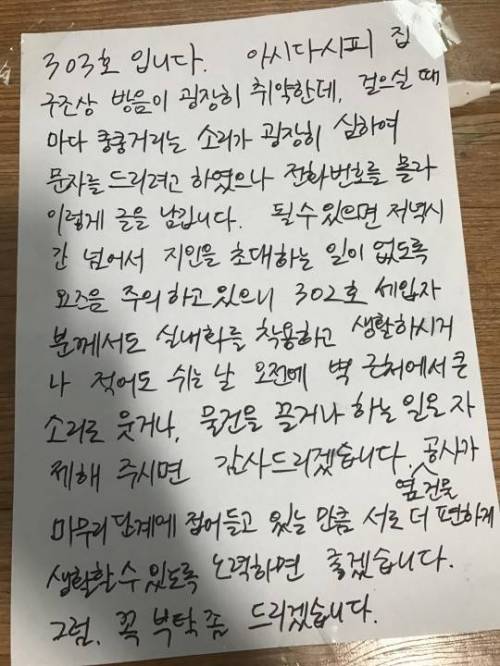 303호 입니다. 아시다시피 집
구조상 방음이 굉장히 취약한데, 걸으실 때
마다 쿵쿵거리는 소리가 굉장히 심하여
문자를 드리려고 하였으나 전화번호를 몰라
이렇게 글을 남깁니다. 될수있으면 저녁시
간 넘어서 지인을 초대하는 일이 없도록
요즈음 주의하고있으니 302호 세입자
분께서도 실내화를 착용하고 생활하시거
나 적어도 쉬는 날 오전에 벽 근처에서 큰
소리로 웃거나, 물건을 끌거나 하는 일은 자
제해 주시면 감사드리겠습니다. 공사가
옆건물
마무리단계에 접어들고 있는 만큼 서로 더 편하게
생활할 수 있도록 노력하면 좋겠습니다.
그럼, 꼭 부탁 좀 드리겠습니다.